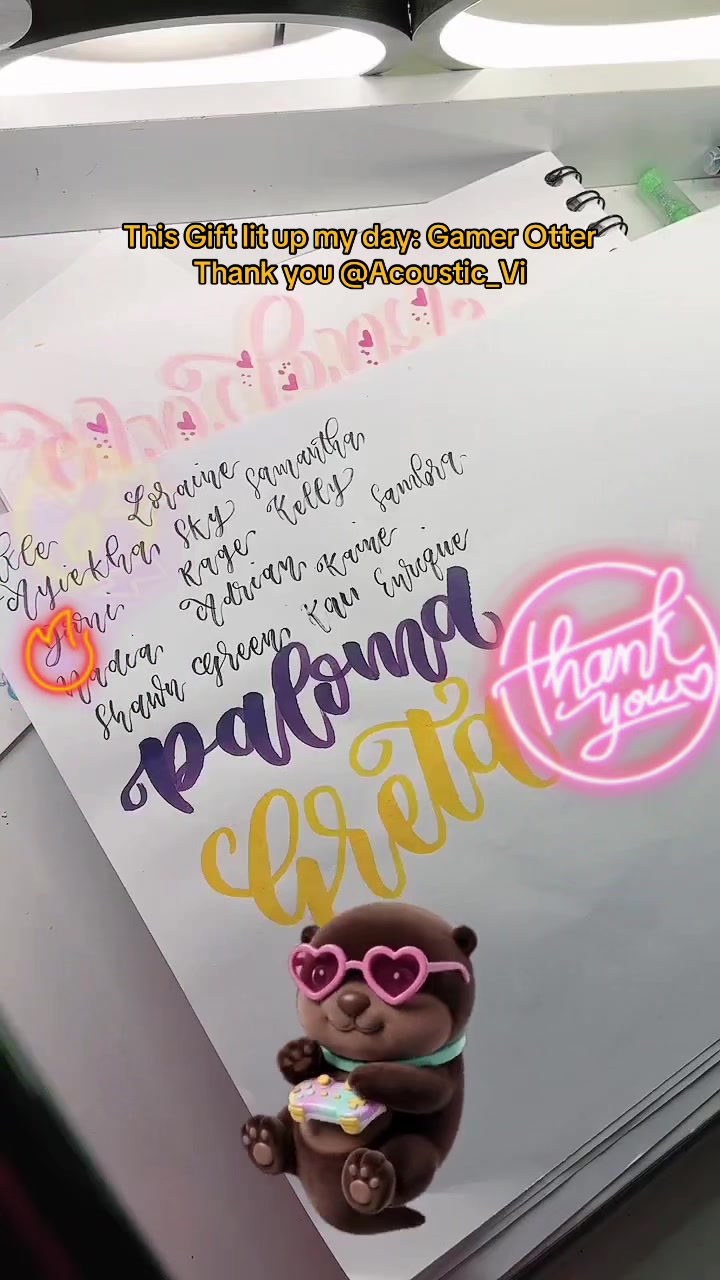 This Gift lit up my day: Gamer Otter
Thank you @Acoustic_Vi
Loraine Samantha
Ayiekha Sky Kelly
Rage Sandra
Adrian Kaine
Nadia
Shawn Green Kau Enrique
Paloma
Greta
thank
you